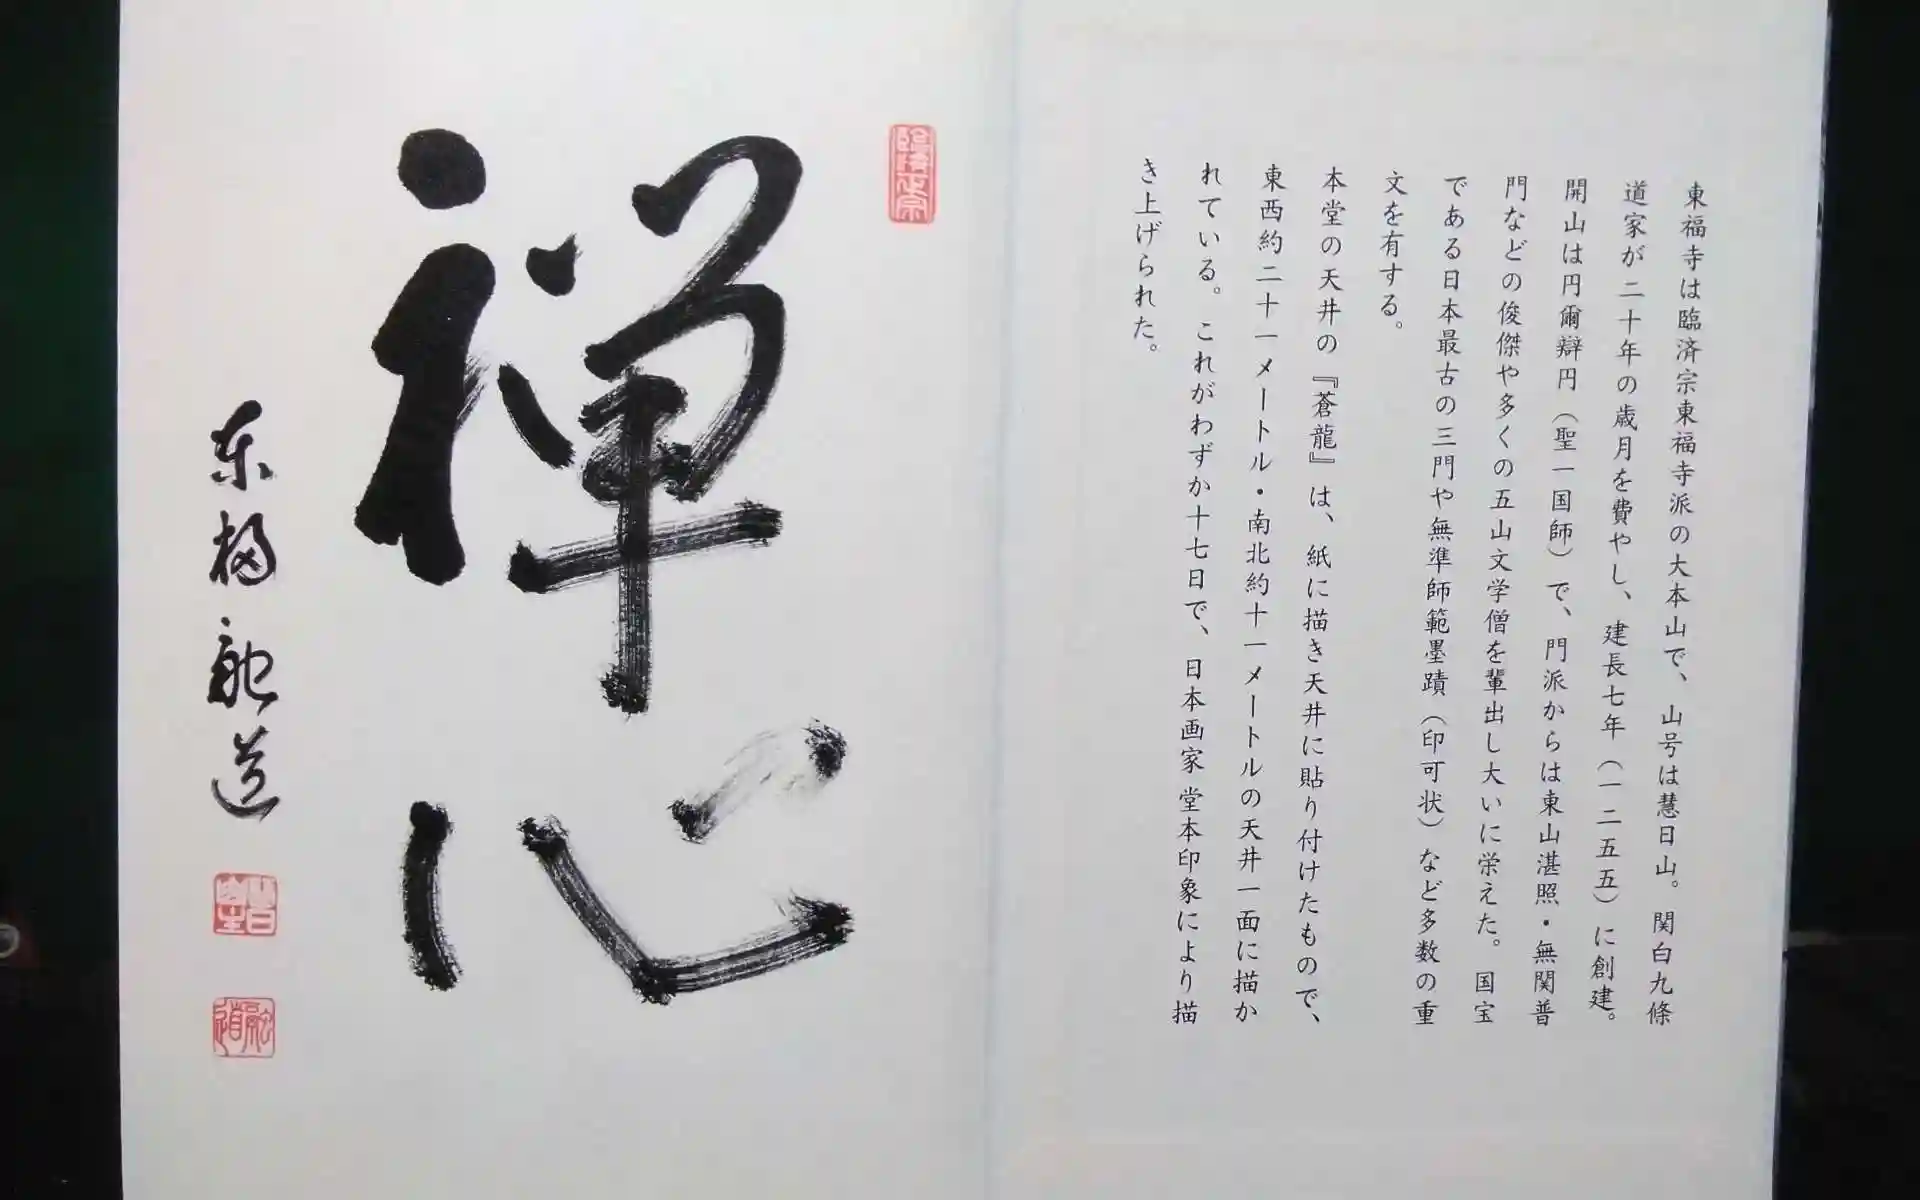 東福寺は臨済宗東福寺派の大本山で、山号は慧日山。関白九條
道家が二十年の歳月を費やし、建長七年（一二五五）に創建。
開山は円爾辯円（聖一国師）で、門派からは東山湛照・無関普
門などの俊傑や多くの五山文学僧を輩出し大いに栄えた。国宝
である日本最古の三門や無準師範墨蹟（印可状）など多数の重
文を有する。
本堂の天井の『蒼龍』は、紙に描き天井に貼り付けたもので、
東西約二十一メートル・南北約十一メートルの天井一面に描か
れている。これがわずか十七日で、日本画家堂本印象により描
き上げられた。
臨済正宗
禅心
東福融道
融道